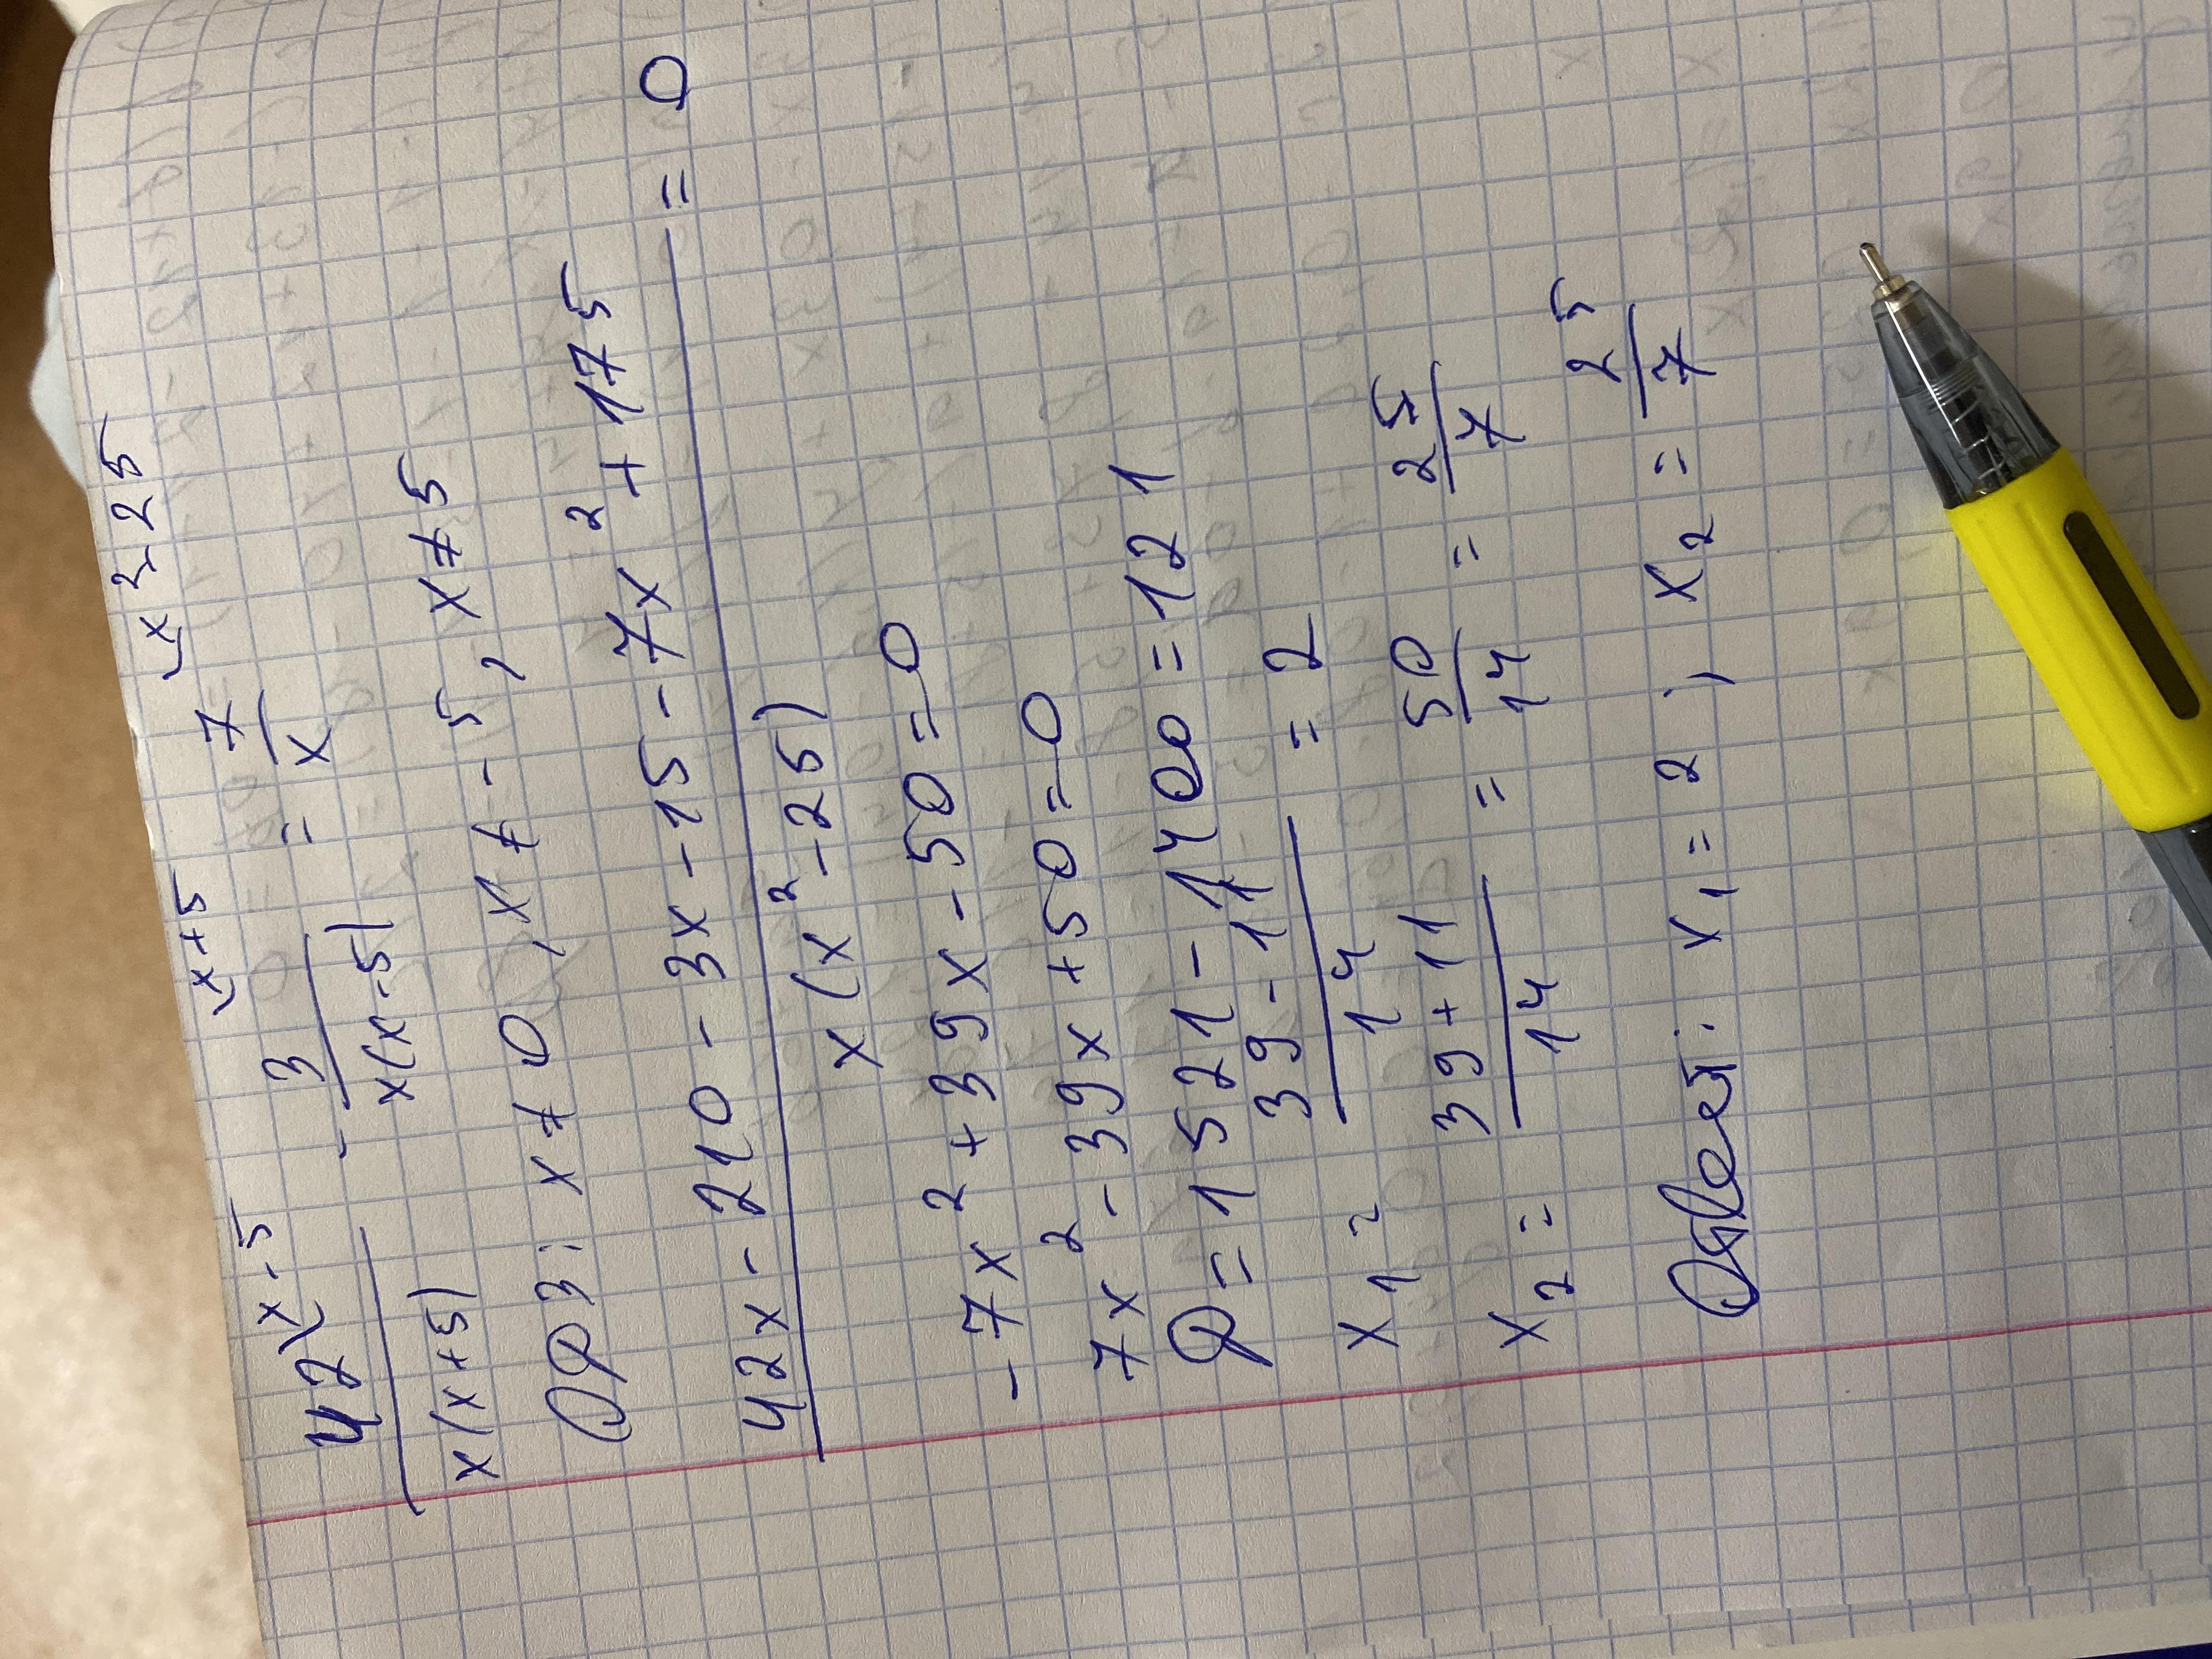 42\x-5 / x(x+5) - 3\x+5 / x(x-5) = 7\x²-25 / x
ОРЗ: x≠0, x≠-5, x≠5
42x-210-3x-15-7x²+175 / x(x²-25) = 0
-7x²+39x-50=0
7x²-39x+50=0
D=1521-1400=121
x₁= 39-11 / 14 = 2
x₂= 39+11 / 14 = 50 / 14 = 25 / 7
Ответ: x₁=2; x₂= 25 / 7